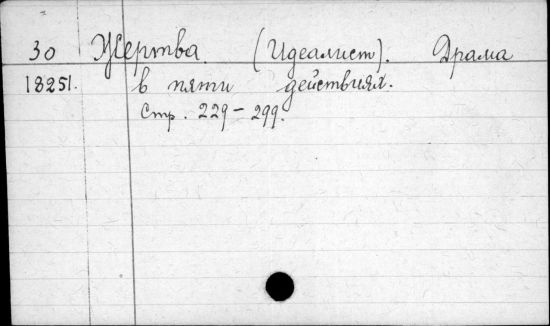 30 Жертва. (Идеалист). Драма
18251. в пяти действиях.
Стр. 229-299.